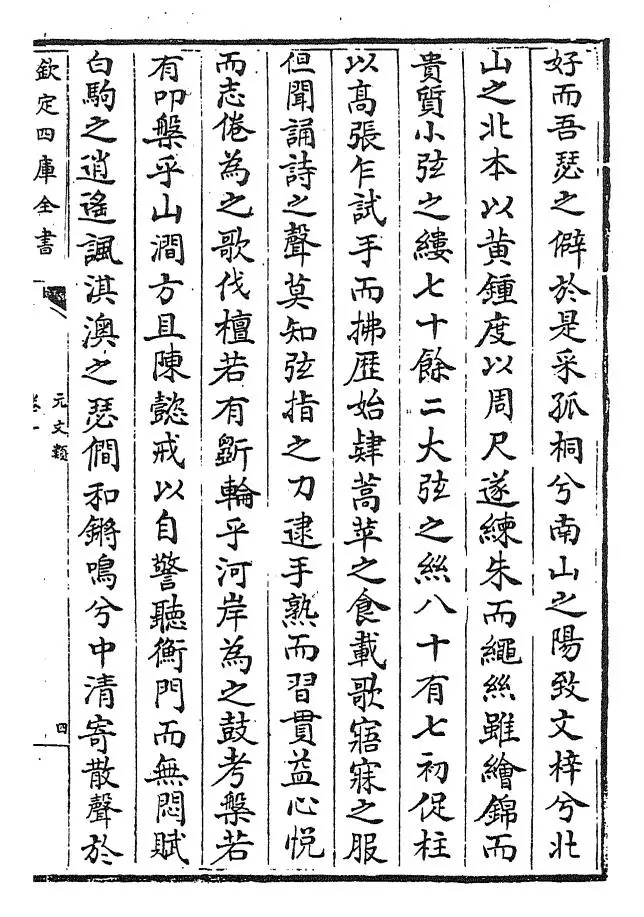 好而吾瑟之僻於是采孤桐兮南山之陽致文梓兮北
山之北本以黄鍾度以周尺遂練朱而繩絲雖繪錦而
貴質小弦之縷七十餘二大弦之絲八十有七初促柱
以髙張乍試手而拂歴始肄蒿苹之食載歌寤寐之服
但聞誦詩之聲莫知弦指之力逮手熟而習貫益心悦
而志倦為之歌伐檀若有斵輪乎河岸為之鼓考槃若
有叩槃乎山澗方且陳懿戒以自警聽衡門而無悶賦
白駒之逍遙諷淇澳之瑟僩和鏘鳴兮中清寄散聲於
欽定四庫全書
元文類
卷一
四